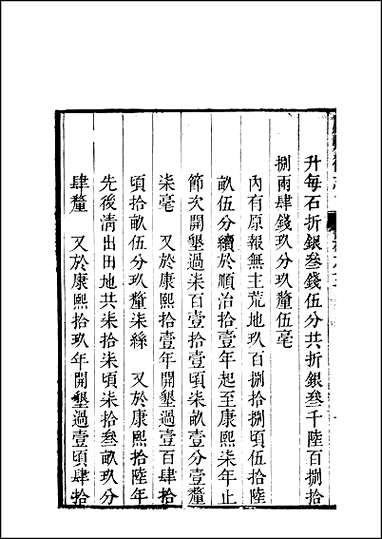 升每石折銀叁錢伍分共折銀叁千陸百捌拾
捌兩肆錢玖分玖釐伍毫
內有原報無主荒地玖百捌拾捌頃伍拾陸
畝伍分續於順治拾壹年起至康熙柒年止
節次開墾過柒百壹拾壹頃柒畝壹分壹釐
柒毫 又於康熙拾壹年開墾過壹百肆拾
頃拾畝伍分玖釐柒絲 又於康熙拾陸年
先後清出田地共柒拾柒頃柒拾叁畝玖分
肆釐 又於康熙拾玖年開墾過壹頃肆拾